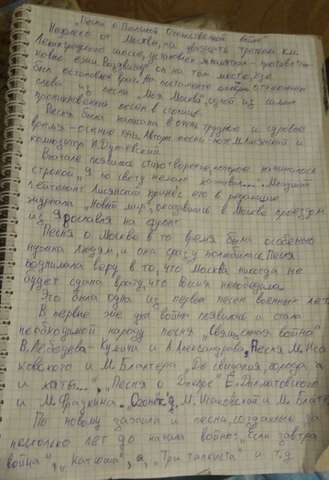 "Песни о Великой Отечественной войне"
Недалеко от Москвы, на двадцать третьем км
Ленинградского шоссе, установлен памятник – противотан-
ковые ежи. Воздвигнут он на том месте, где
был остановлен враг. На постаменте слова
слова из песни "Моя Москва", одной из самых
проникновенных песен о столице.
Песня была написана в очень трудное и суровое
время – осенью 41. Авторы песни поэт М. Лисянский и
композитор И. Дунаевский.
Вначале появилось стихотворение, которое начиналось
строкой "Я по свету немало хаживал..." Младший
лейтенант Лисянский принёс его в редакцию
журнала "Новый мир", оказавшись в Москве проездом
из Ярославля на фронт.
Песня о Москве в то время была особенно
нужна людям, и она сразу полюбилась. Песня
вселила веру в то, что Москва никогда не
будет сдана врагу, что Россия непобедима.
Это была одна из первых песен военных лет.
В первые же дни войны появилась и стала
необходимой народу песня "Священная война"
В. Лебедева-Кумача и А. Александрова, Песня М. Иса
ковского и М. Блантера "До свидания, города
и хаты...", "Песня о Днепре" Е. Долматовского
и М. Фрадкина, "Огонёк", М. Исаковский и М. Блантер
По новому зазвучали и песни, созданные за
несколько лет до начала войны: "Если завтра
война", "Катюша", "Три танкиста" и т.д.